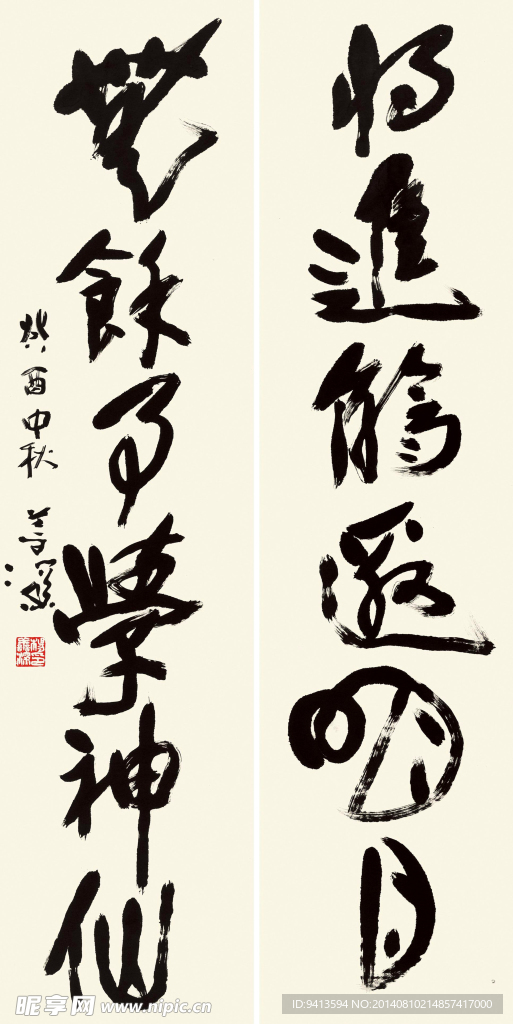 将進觴邀明月
無餘事學神仙
癸酉中秋
昵享网 www.nipic.cn
ID:9413594 NO.20140810214857417000